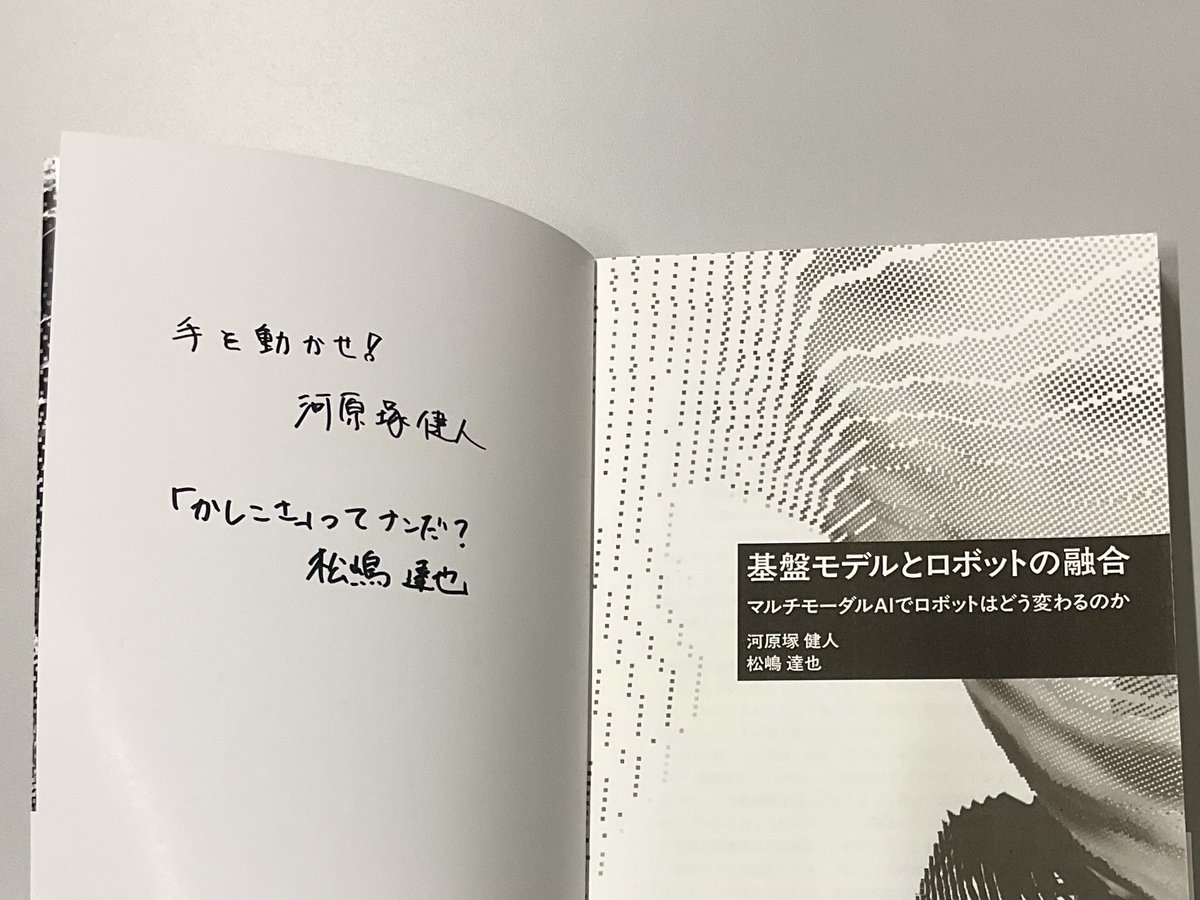 手を動かせ!
河原塚健人
「かしこさ」ってナンだ?
松嶋達也
基盤モデルとロボットの融合
マルチモーダルAIでロボットはどう変わるのか
河原塚 健人
松嶋 達也